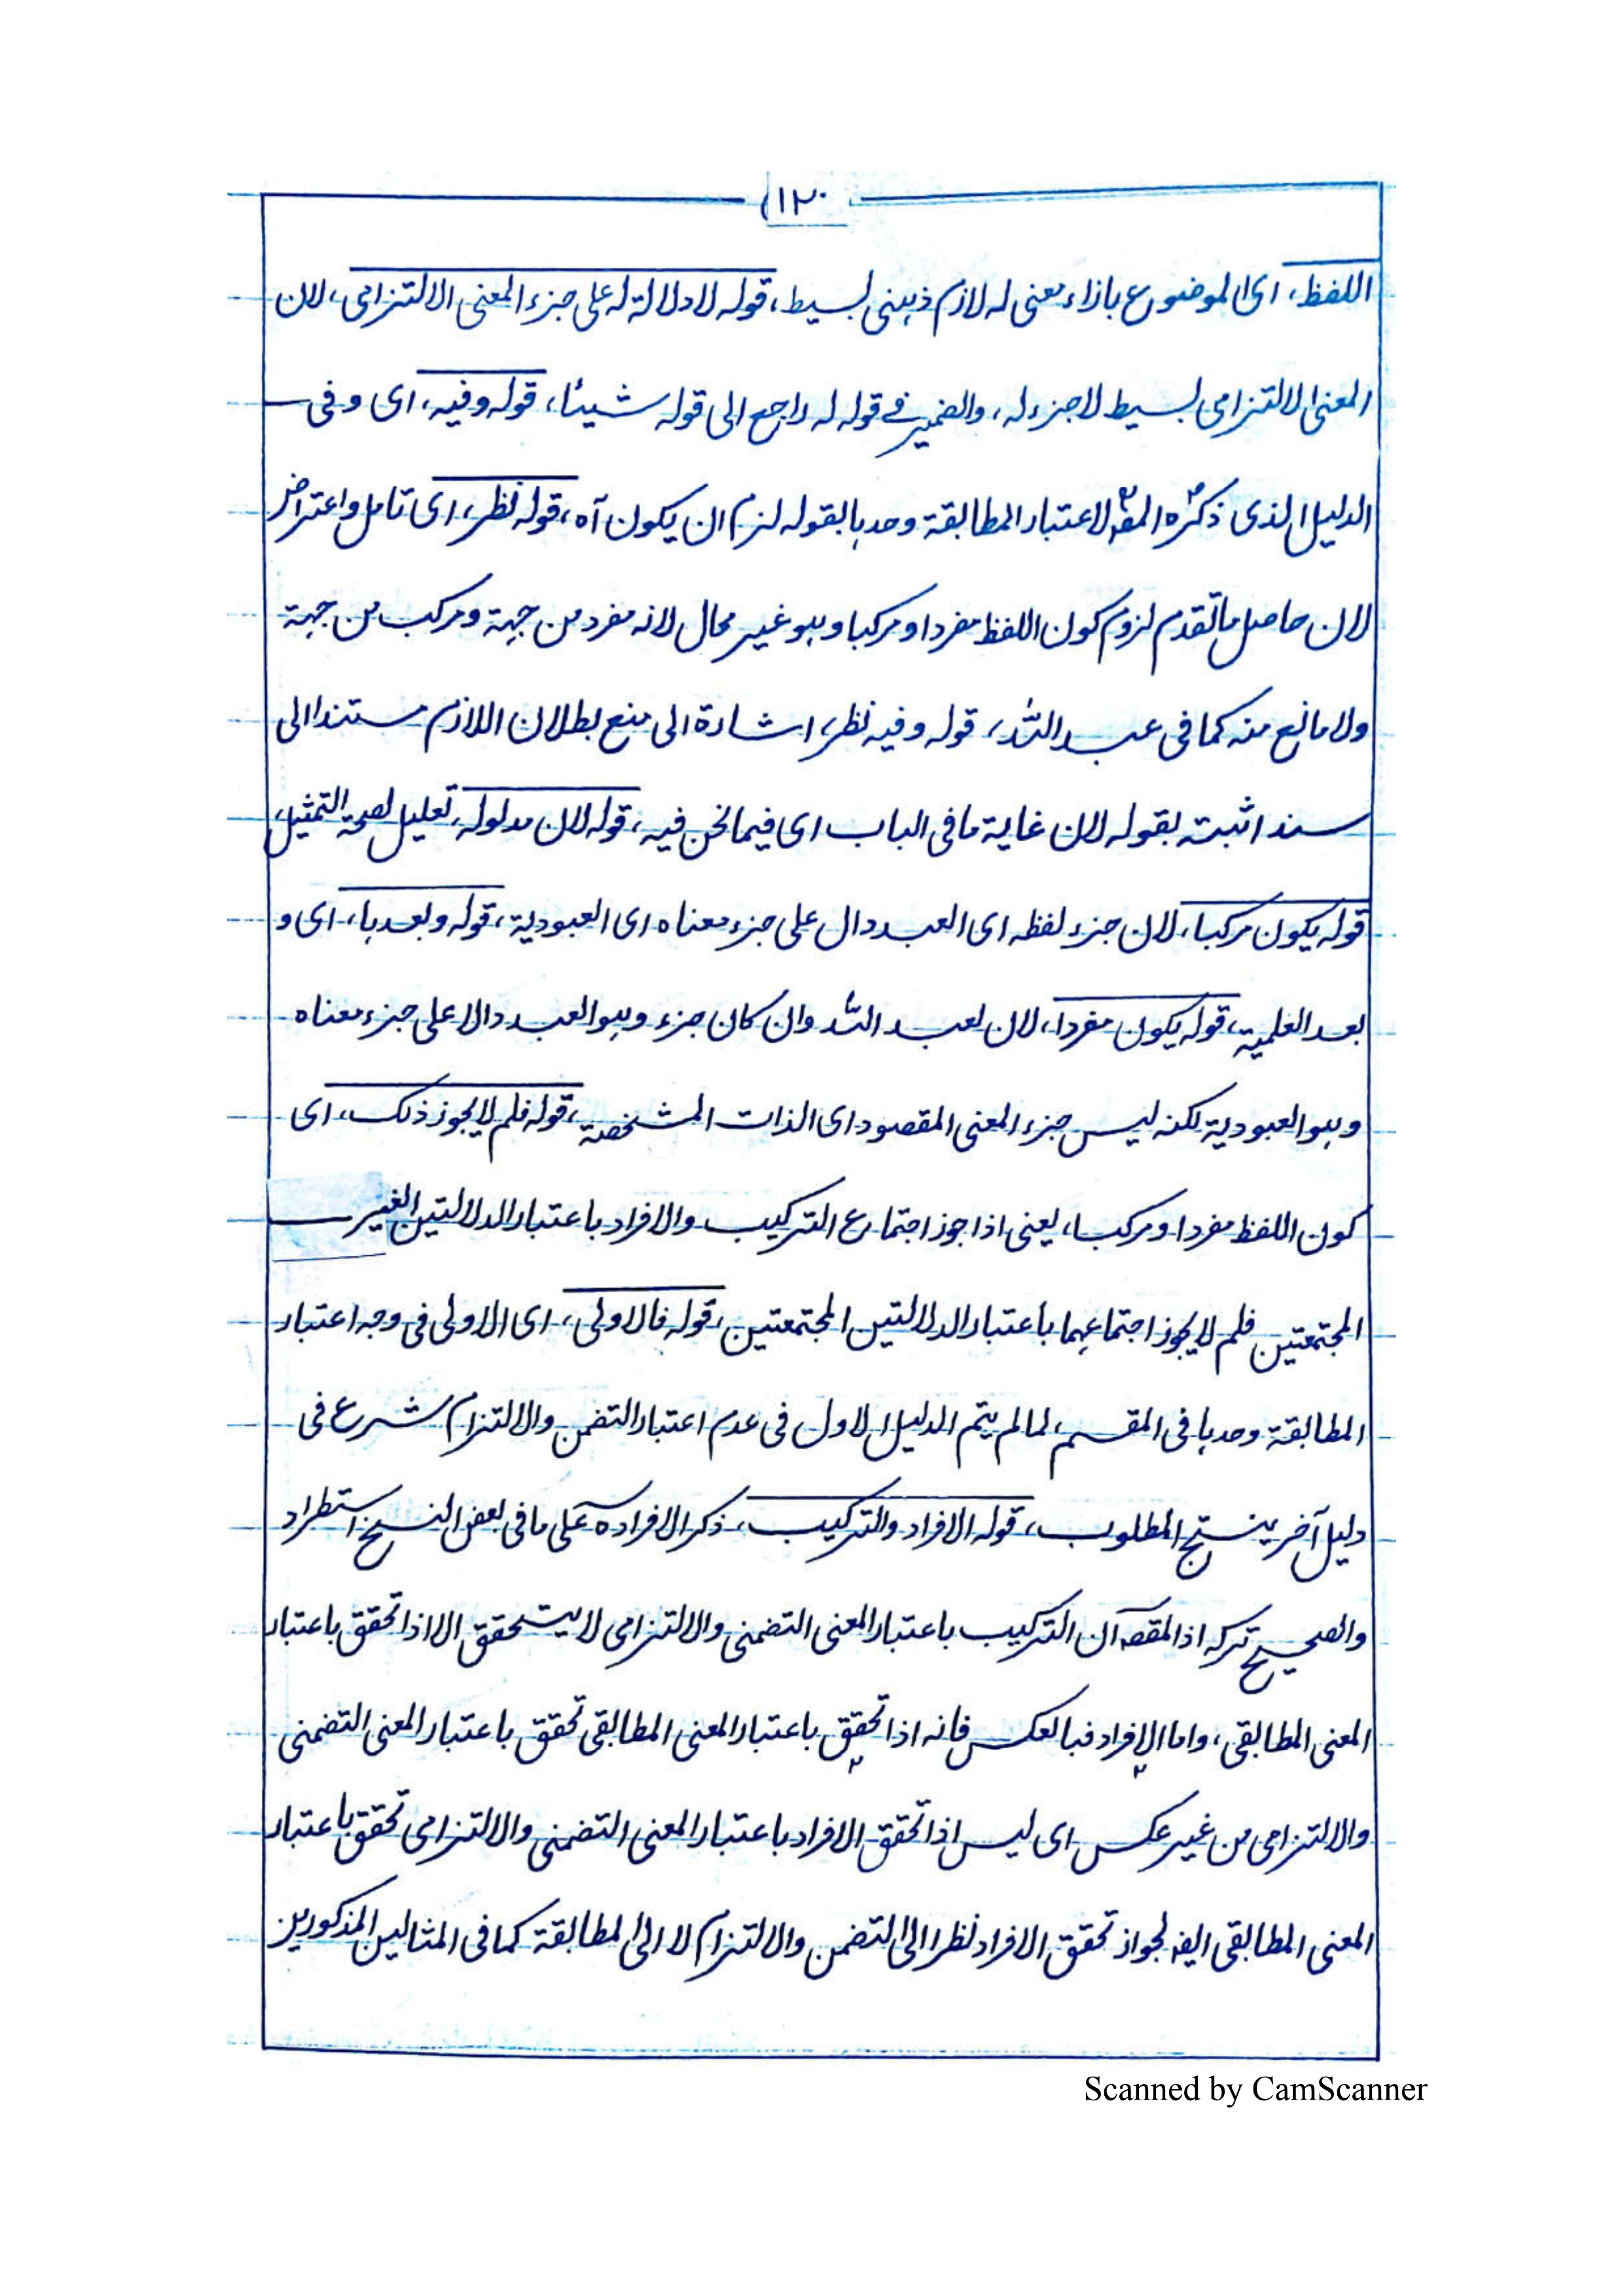 (١٢٠
اللفظ، اى الموضوع بازاء معنى له لازم ذهنى بسيط، قوله لا دلالة له على جزء المعنى الالتزامى، لان
المعنى الالتزامى بسيط لا جزء له، والضمير فى قوله له راجع الى قوله شيئا، قوله وفيه، اى وفى
الدليل الذى ذكره المصؒ لاعتبار المطابقة وحدها بقوله لزم ان يكون آه، قوله نظر، اى تامل واعتراض
لان حاصل ما تقدم لزوم كون اللفظ مفردا ومركبا وهو غير محال لانه مفرد من جهة ومركب من جهة
ولا مانع منه كما فى عبد الله، قوله وفيه نظر، اشارة الى منع بطلان اللازم مستندا الى
سند اثبته بقوله لان غاية ما فى الباب اى فيما نحن فيه، قوله لان مدلوله، تعليل لصحة التمثيل،
قوله يكون مركبا، لان جزء لفظه اى العبد دال على جزء معناه اى العبودية، قوله وبعدها، اى و
بعد العلمية، قوله يكون مفردا، لان لعبد الله وان كان جزء وهو العبد دالا على جزء معناه
وهو العبودية لكنه ليس جزء المعنى المقصود اى الذات المشخصة، قوله فلم لا يجوز ذلك، اى
كون اللفظ مفردا ومركبا، يعنى اذا جوز اجتماع التركيب والافراد باعتبار الدلالتين الغير
المجتمعتين فلم لا يجوز اجتماعهما باعتبار الدلالتين المجتمعتين، قوله فالاولى، اى الاولى فى وجه اعتبار
المطابقة وحدها فى المقسم، لما لم يتم الدليل الاول فى عدم اعتبار التضمن والالتزام شرع فى
دليل آخر ينتج المطلوب، قوله الافراد والتركيب، ذكر الافراد على ما فى بعض النسخ استطراد
والصحيح تركه اذ المقصـ ان التركيب باعتبار المعنى التضمنى والالتزامى لا يتحقق الا اذا تحقق باعتبار
المعنى المطابقى، واما الافراد فبالعكس فانه اذا تحقق باعتبار المعنى المطابقى تحقق باعتبار المعنى التضمنى
والالتزامى من غير عكس اى ليس اذا تحقق الافراد باعتبار المعنى التضمنى والالتزامى تحقق باعتبار
المعنى المطابقى ايضـ لجواز تحقق الافراد نظرا الى التضمن والالتزام لا الى المطابقة كما فى المثالين المذكورين
Scanned by CamScanner